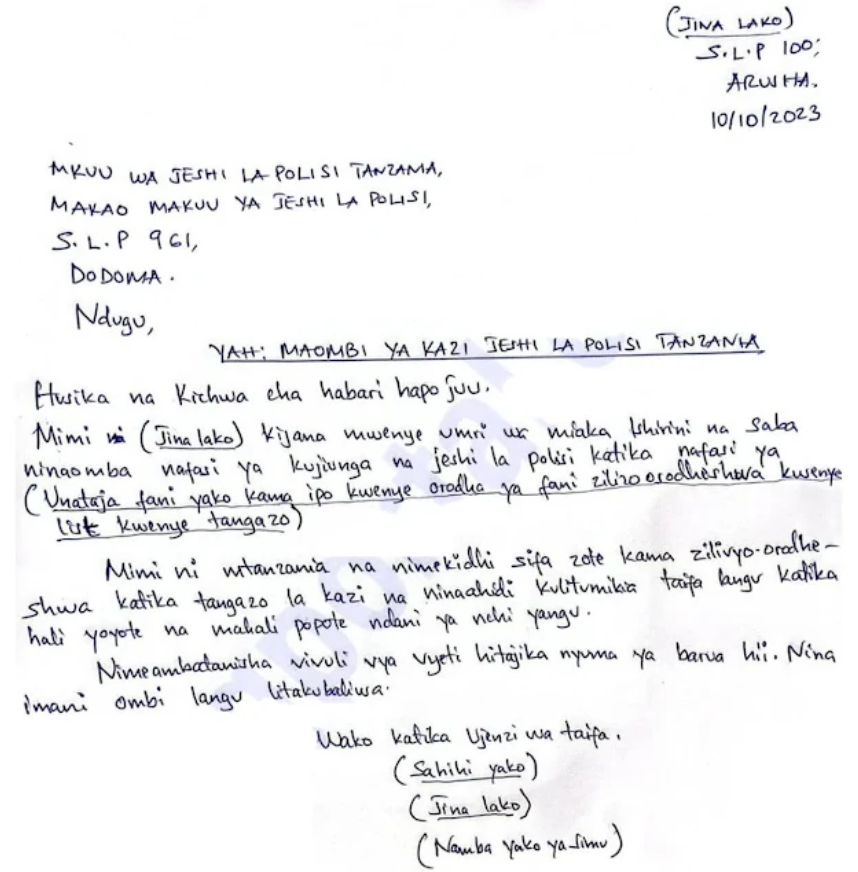 (JINA LAKO)
S.L.P 100,
ARUSHA.
10/10/2023
MKUU WA JESHI LA POLISI TANZAMA,
MAKAO MAKUU YA JESHI LA POLISI,
S.L.P 961,
DODOMA.
Ndugu,
YAH: MAOMBI YA KAZI JESHI LA POLISI TANZANIA
Husika na Kichwa cha habari hapo juu.
Mimi ni (Jina lako) Kijana mwenye umri wa miaka Ishirini na Saba
ninaomba nafasi ya kujiunga na jeshi la polisi katika nafasi ya
(Unataja fani yako kama ipo kwenye orodha ya fani zilizoorodheshwa kwenye
list kwenye tangazo)
Mimi ni mtanzania na nimekidhi sifa zote kama zilivyo-orodhe-
shwa katika tangazo la kazi na ninaahidi kulitumikia taifa langu katika
hali yoyote na mahali popote ndani ya nchi yangu.
Nimeambatanisha vivuli vya vyeti hitajika nyuma ya barua hii. Nina
imani ombi langu litakubaliwa.
Wako katika Ujenzi wa taifa.
(Sahihi yako)
(Jina lako)
(Namba yako ya Simu)